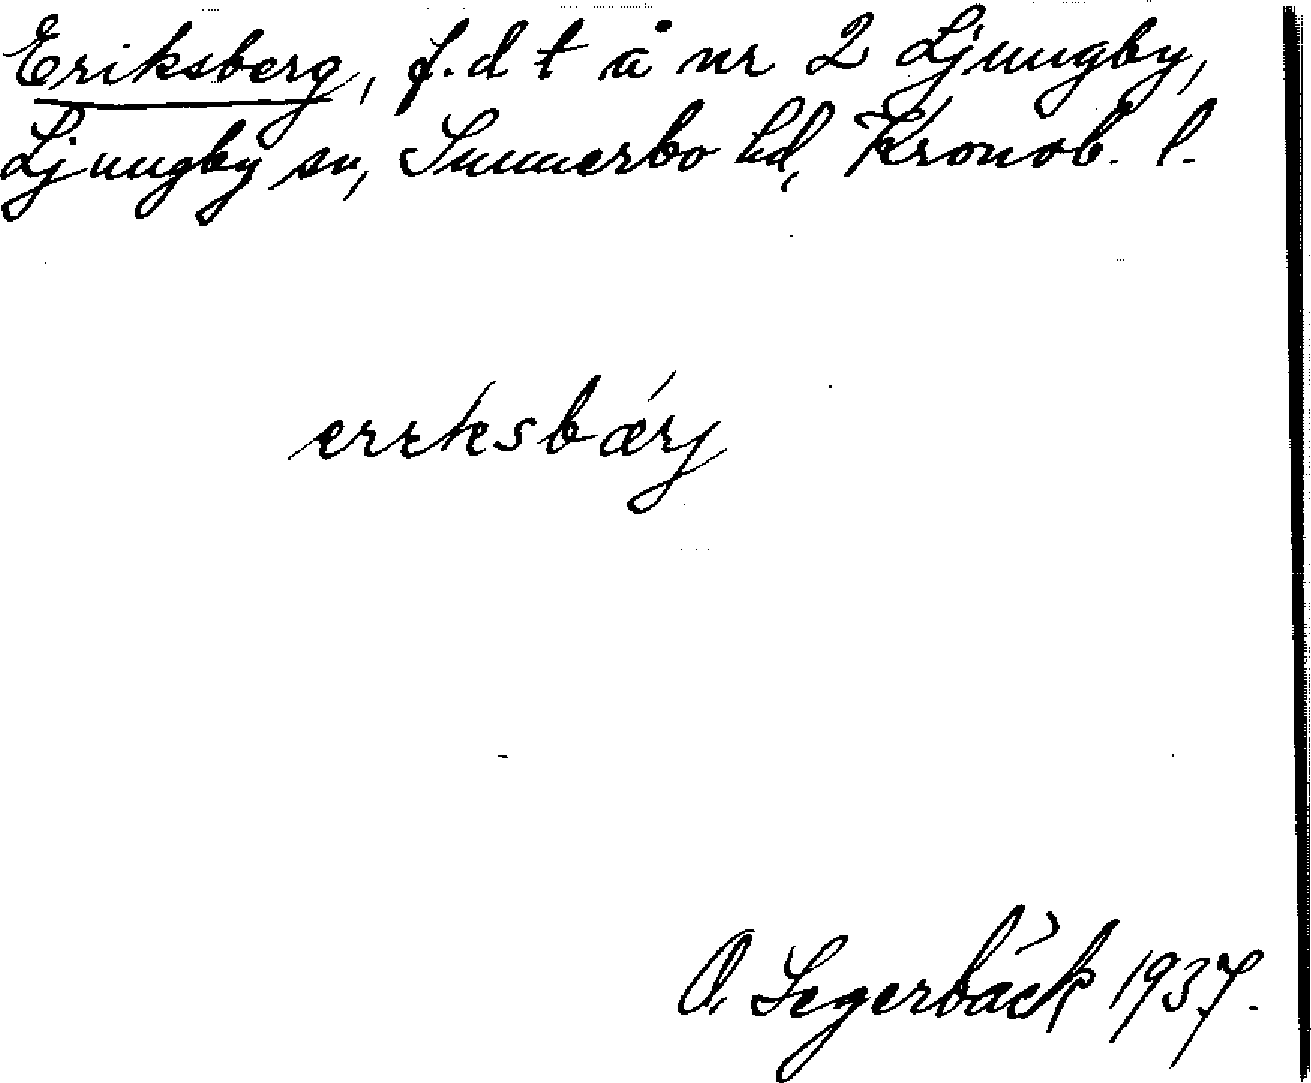 Eriksberg, f.d t å nr 2 Ljungby,
Ljungby sn, Sunnerbo hd, Kronob. l.
erɩksbǽrj
O. Segerbäck 1937.